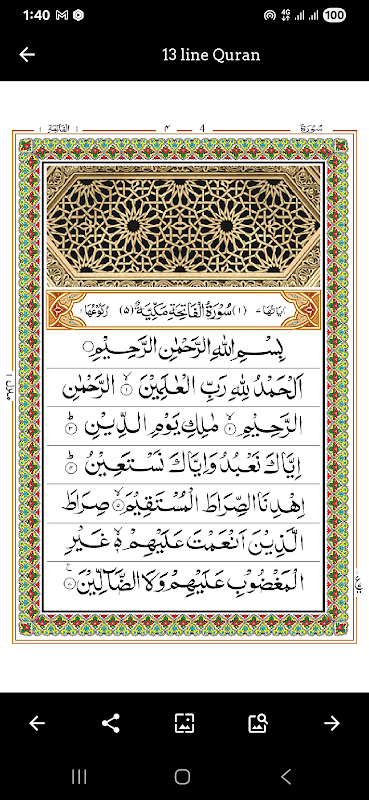 1:40 4G 100
13 line Quran
الفاتحة ١ ٣ 4 سورة
اٰیاتها ٧ (١) سُوْرَةُ الْفَاتِحَةِ مَكِّیَّةٌ (٥) رکوعها ١
بِسْمِ اللّٰهِ الرَّحْمٰنِ الرَّحِیْمِ
اَلْحَمْدُ لِلّٰهِ رَبِّ الْعٰلَمِیْنَ ۙ﴿١﴾ الرَّحْمٰنِ
الرَّحِیْمِ ۙ﴿٢﴾ مٰلِكِ یَوْمِ الدِّیْنِ ؕ﴿٣﴾
اِیَّاكَ نَعْبُدُ وَاِیَّاكَ نَسْتَعِیْنُ ؕ﴿٤﴾
اِهْدِنَا الصِّرَاطَ الْمُسْتَقِیْمَ ۙ﴿٥﴾ صِرَاطَ
الَّذِیْنَ اَنْعَمْتَ عَلَیْهِمْ ۙ۬﴿٦﴾ غَیْرِ
الْمَغْضُوْبِ عَلَیْهِمْ وَلَا الضَّآلِّیْنَ ﴿٧﴾
منزل ١